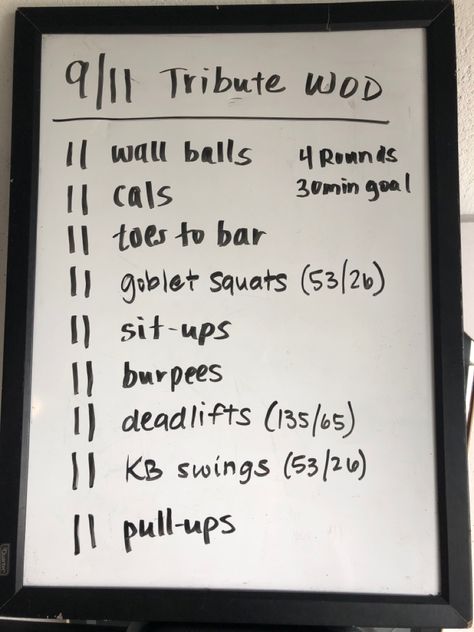 9/11 Tribute WOD
11 wall balls
4 Rounds
11 cals
30min goal
11 toes to bar
11 goblet squats (53/26)
11 sit-ups
11 burpees
11 deadlifts (135/65)
11 KB swings (53/26)
11 pull-ups
Quartet